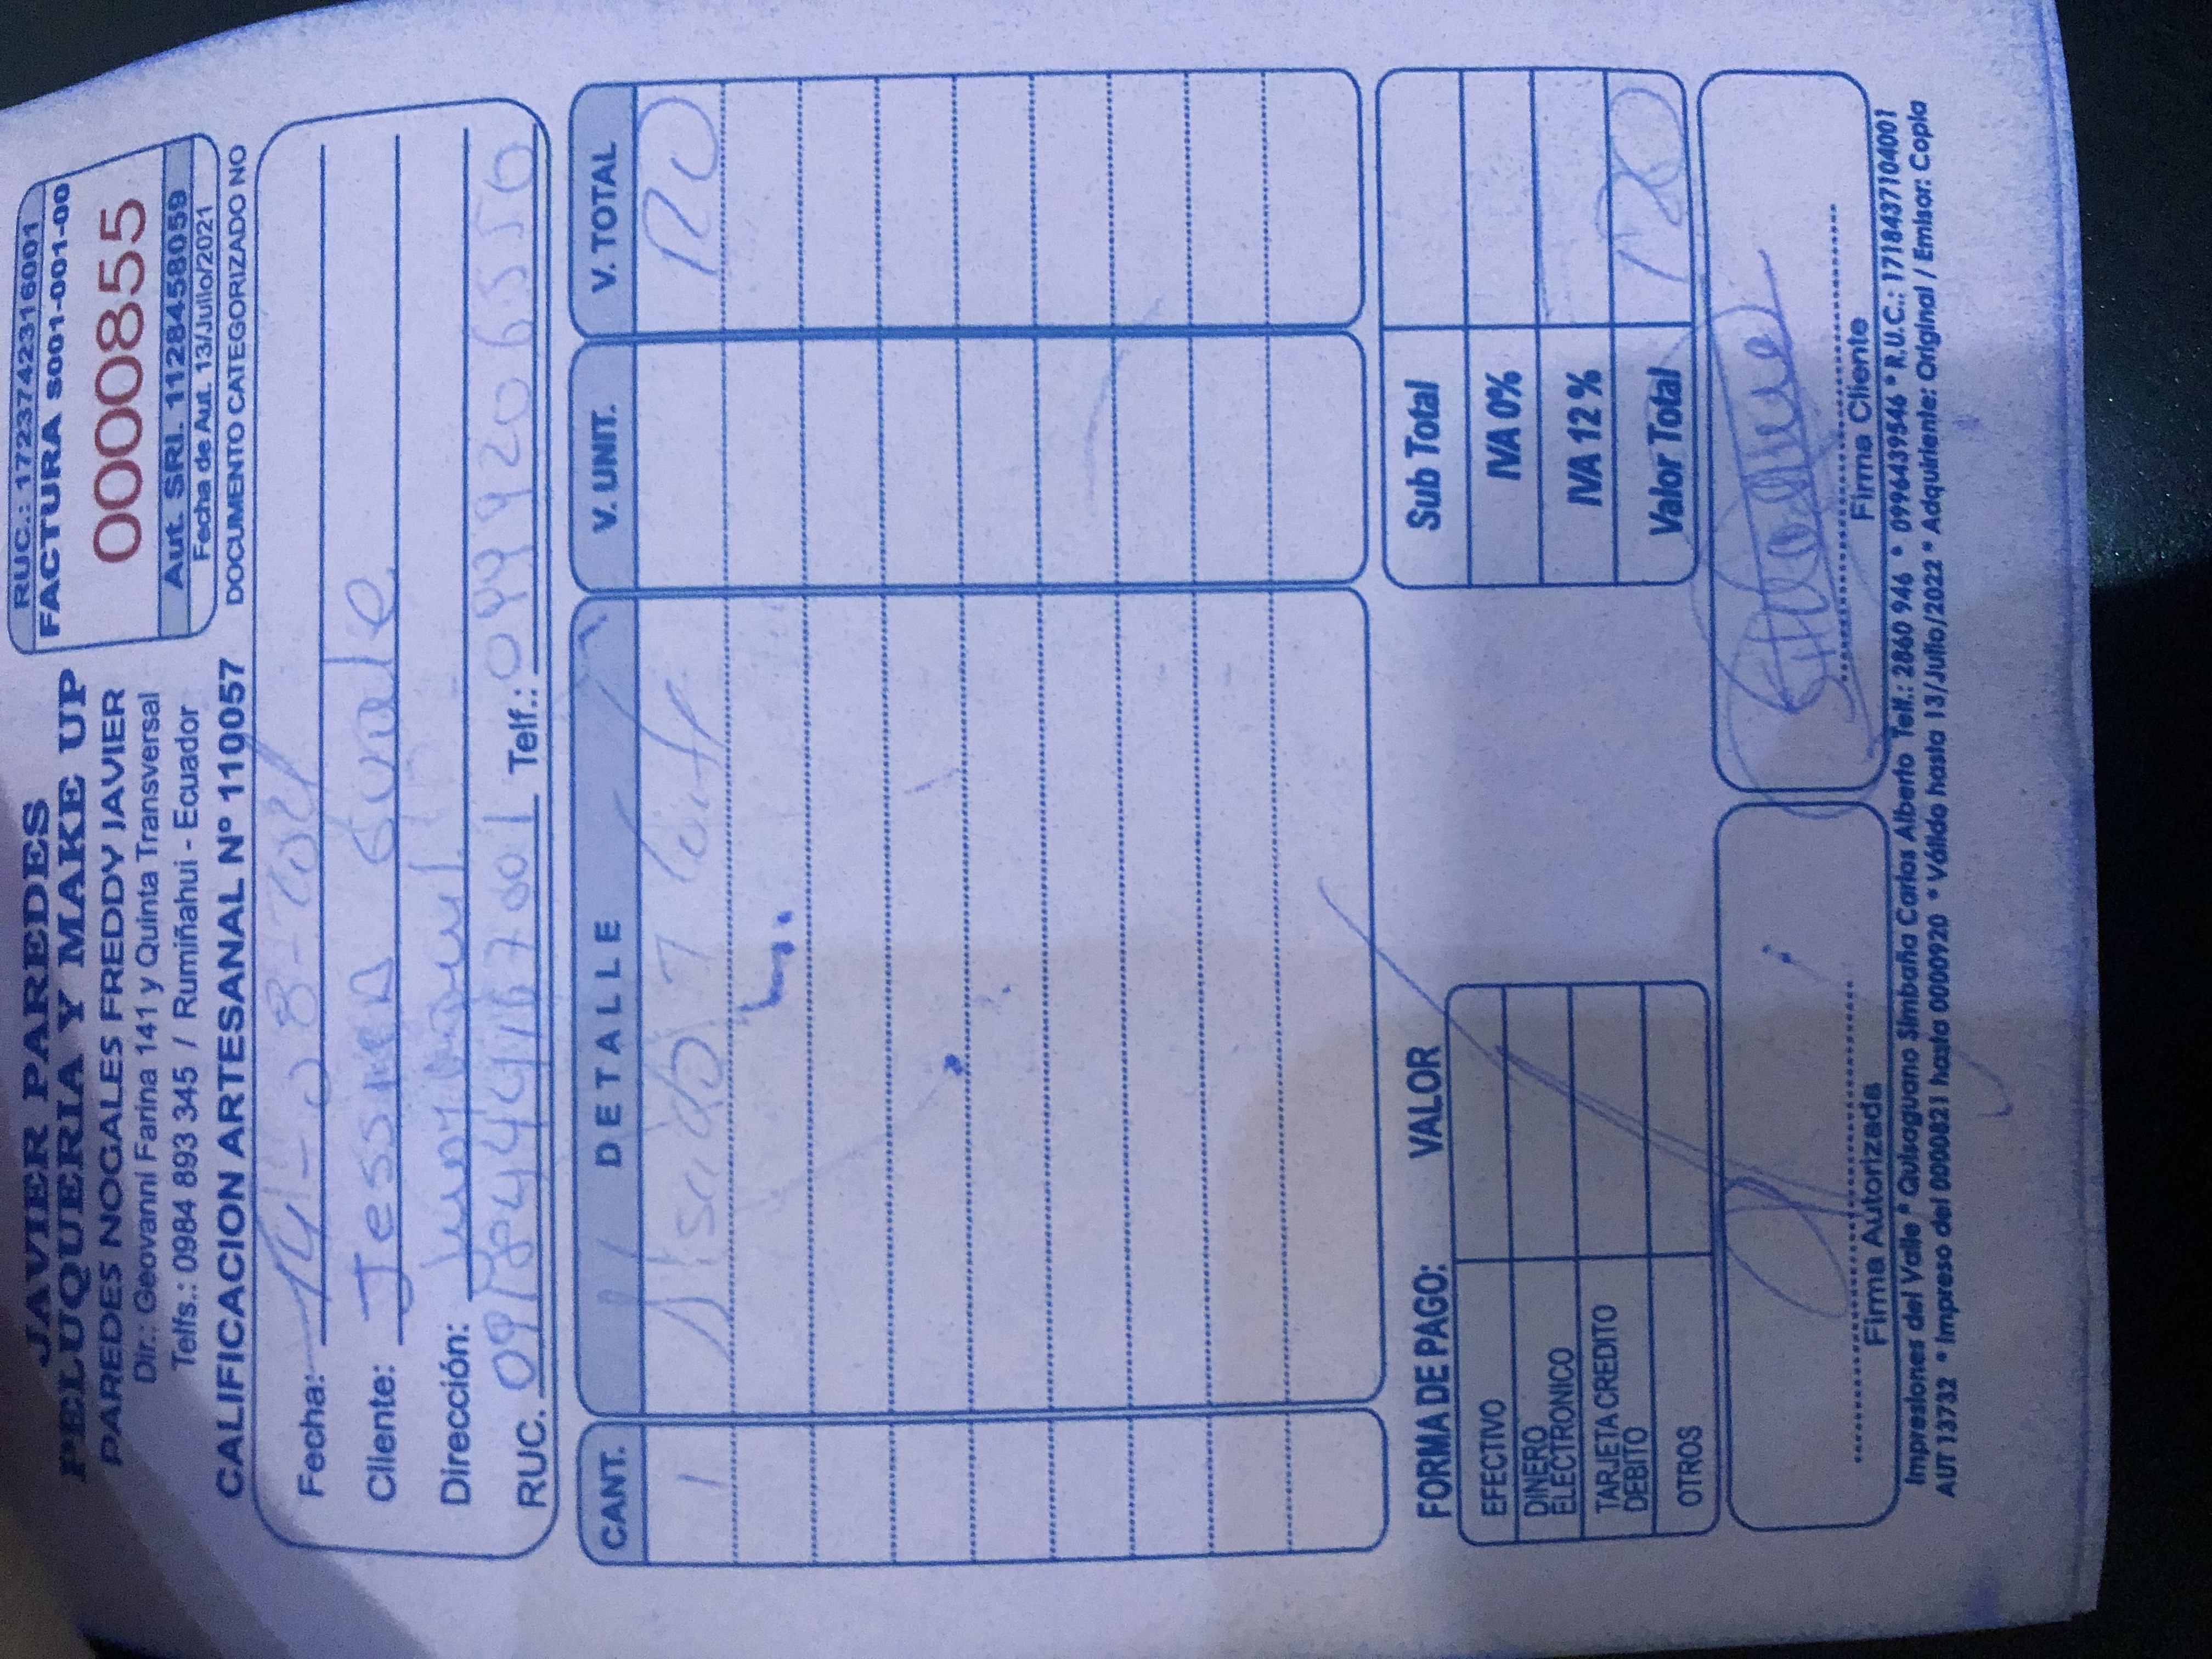 JAVIER PAREDES
PELUQUERIA Y MAKE UP
PAREDES NOGALES FREDDY JAVIER
Dir.: Geovanni Farina 141 y Quinta Transversal
Telfs.: 0984 893 345 / Rumiñahui - Ecuador
CALIFICACION ARTESANAL Nº 110057
RUC.: 1723742316001
FACTURA S001-001-00
0000855
Aut. SRI. 1128458059
Fecha de Aut. 13/Julio/2021
DOCUMENTO CATEGORIZADO NO
Fecha: 14-08-2021
Cliente: Jessica
Dirección:
RUC. Telf.: 0999206550
CANT. DETALLE V. UNIT. V. TOTAL
1 Alisado 120
FORMA DE PAGO: VALOR
EFECTIVO
DINERO ELECTRONICO
TARJETA CREDITO DEBITO
OTROS
Sub Total
IVA 0%
IVA 12 %
Valor Total 120
Firma Autorizada
Firma Cliente
Impresiones del Valle * Quisaguano Simbaña Carlos Alberto Telf.: 2860 946 * 0996439546 * R.U.C.: 1718437104001
AUT 13732 * Impreso del 0000821 hasta 0000920 * Válido hasta 13/Julio/2022 * Adquiriente: Original / Emisor: Copia